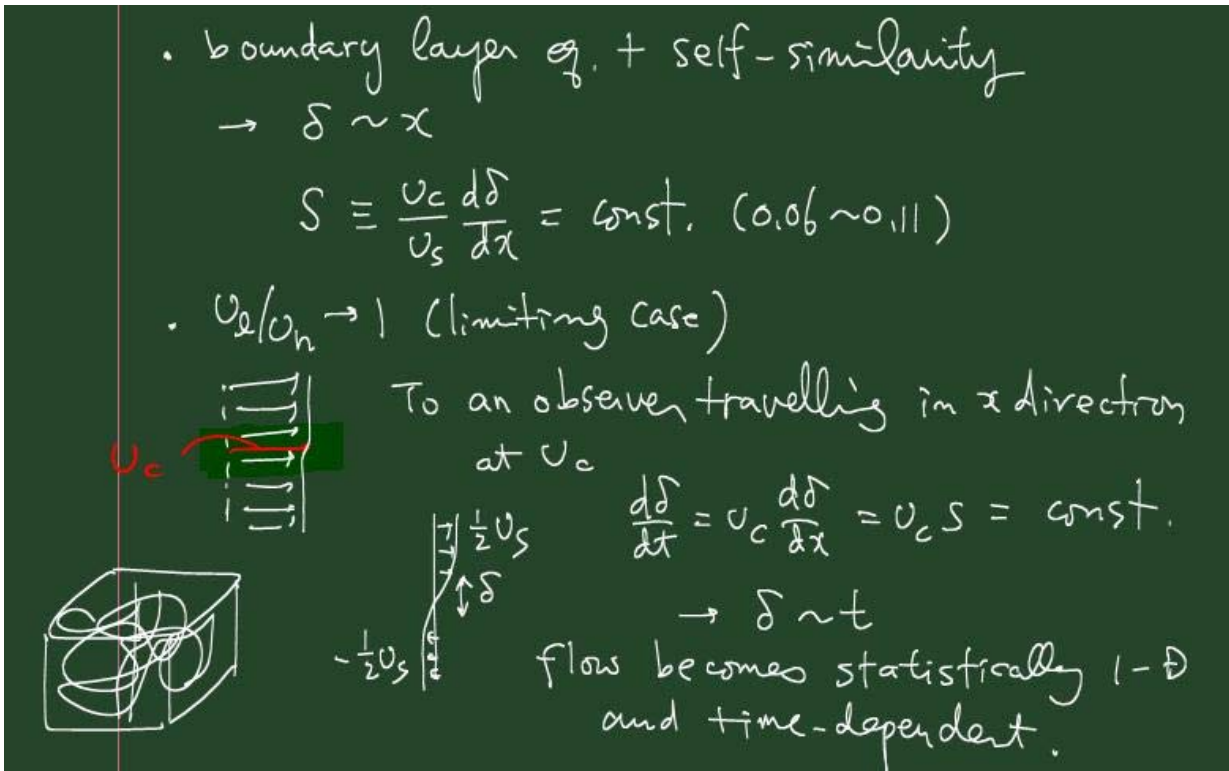 · boundary layer eq. + self-similarity
→ δ ~ x
S ≡ Uc/Us dδ/dx = const. (0.06~0.11)
· Ul/Uh → 1 (limiting case)
To an observer travelling in x direction
at Uc
Uc
dδ/dt = Uc dδ/dx = Uc S = const.
½Us
δ
-½Us
→ δ ~ t
flow becomes statistically 1-D
and time-dependent.